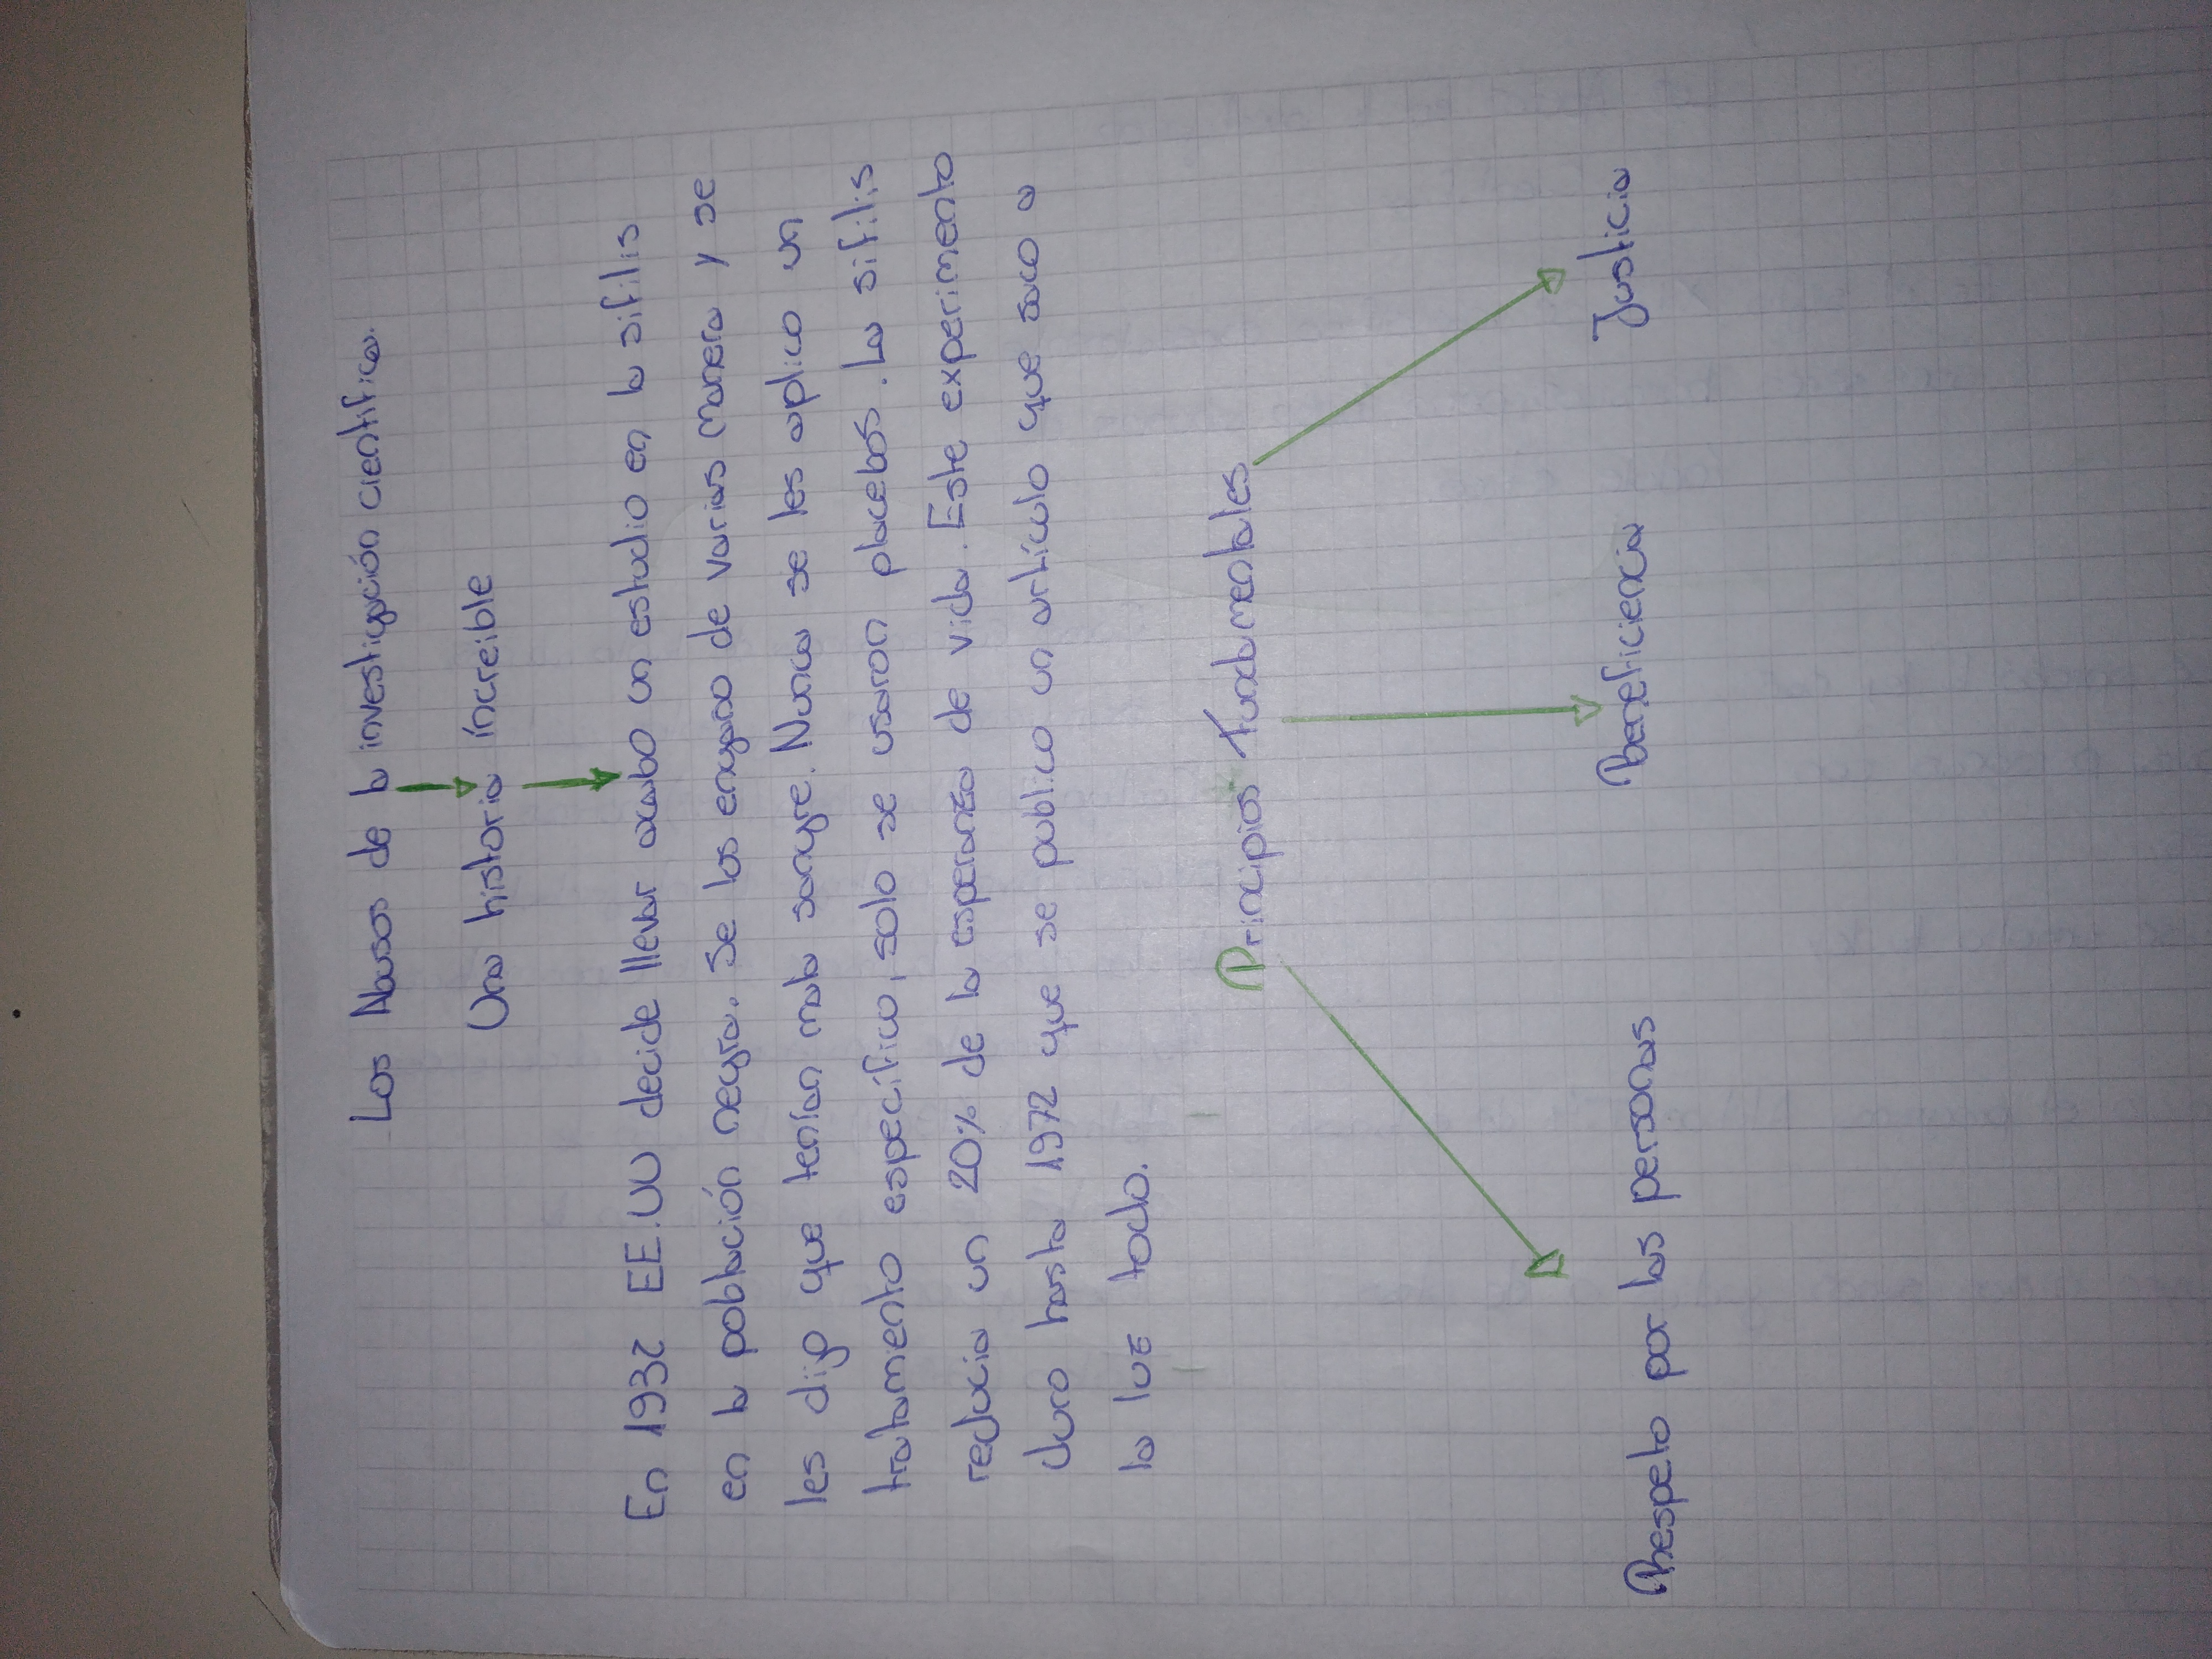 Los Abusos de la investigación cientifica.
Una historia increible
En 1932 EE.UU decide llevar acabo un estudio en la sifilis
en la población negra. Se los engaño de varias manera y se
les dijo que tenían mala sangre. Nunca se les aplico un
tratamiento específico, solo se usaron placebos. La sifilis
reducia un 20% de la esperanza de vida. Este experimento
duro hasta 1972 que se publico un artículo que saco a
la luz todo.
Principios Fundamentales
Respeto por las personas Beneficiencia Justicia